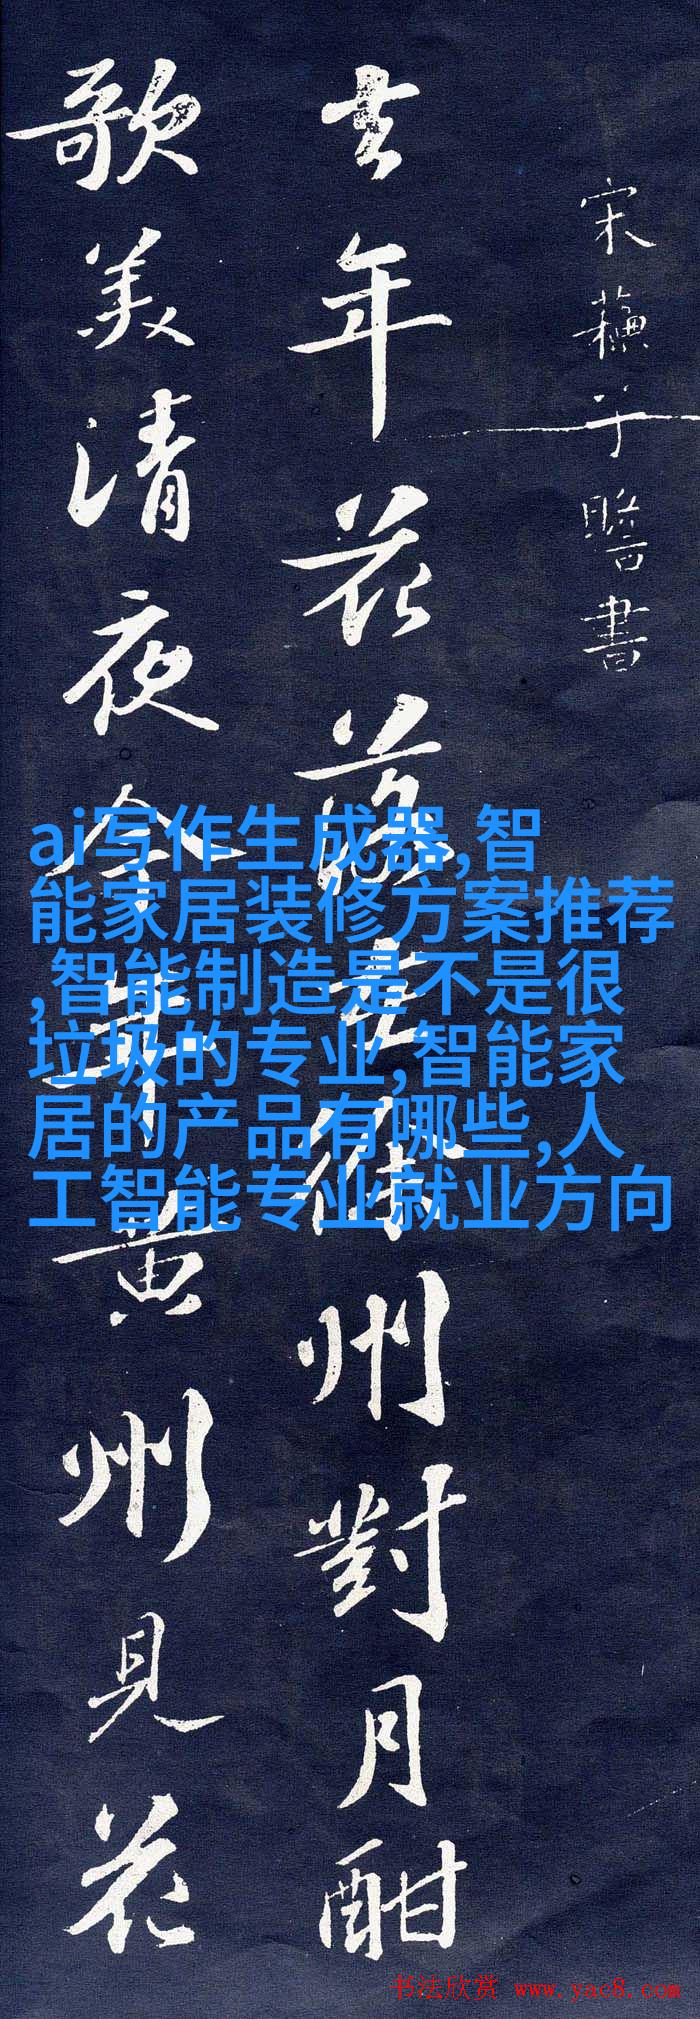 宋蘇子瞻書
去年花落在徐州對月酣
歌美清夜今年黄州見花
ai写作生成器,智
能家居装修方案推荐
,智能制造是不是很
垃圾的专业,智能家
居的产品有哪些,人
工智能专业就业方向
书法欣赏 www.yac8.com